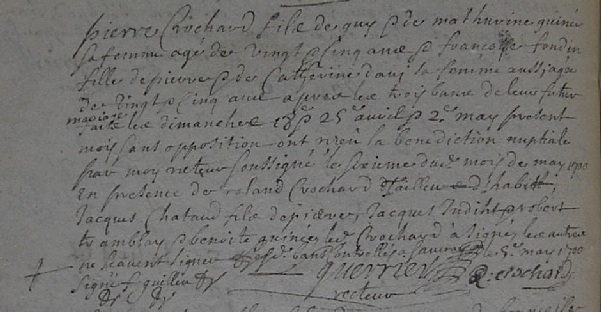 pierre Crochard fils de guy & de mathurine guinée
sa femme agé de vingt & cinq ans & françoise fondin
fille de pierre & de Catherine sa femme aussi agé
de vingt & cinq ans apres les trois bans de leur futur
mariage
faite les dimanches 18e 25e avril & 2e may present
mois sans opposition ont reçu la benediction nuptiale
par moy recteur soussigné le du mois de may
En presence de roland Crochard Tailleur d'habits
Jacques Chataud fils de pierre, Jacques robert
tramblay & benoite guinée led Crochard a signé les autres
ne scavent signer may 1700
signé f guillou guerrier R: crochard
recteur